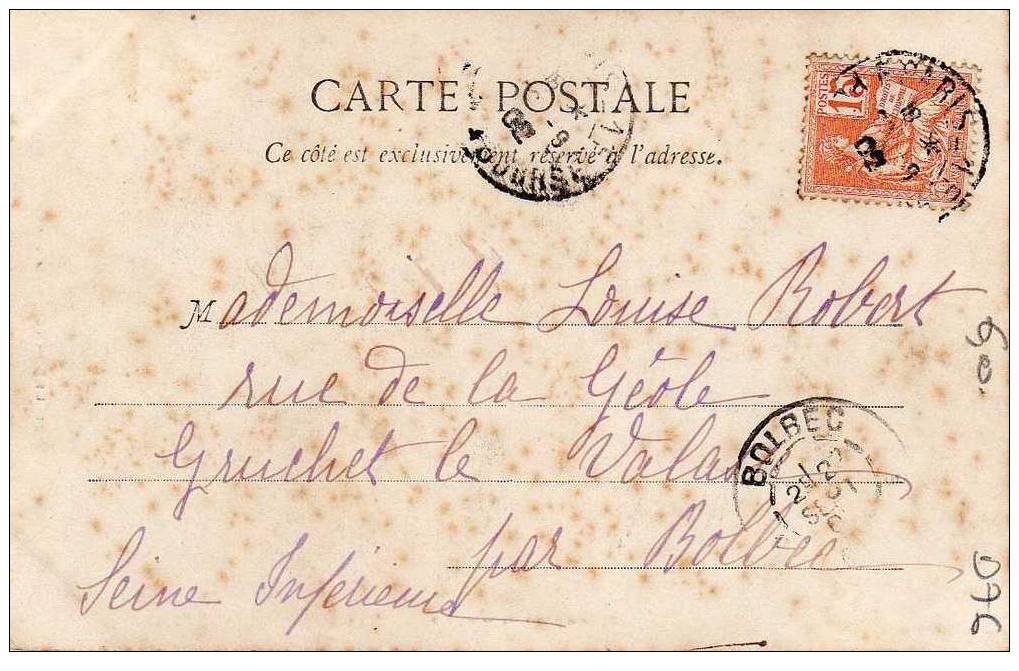 CARTE POSTALE
Ce côté est exclusivement réservé à l'adresse.
POSTES 15
PARIS
02
BOURSE
02
Mademoiselle Louise Robert
rue de la Géole
Gruchet le Valasse
par Bolbec
Seine Inférieure
BOLBEC